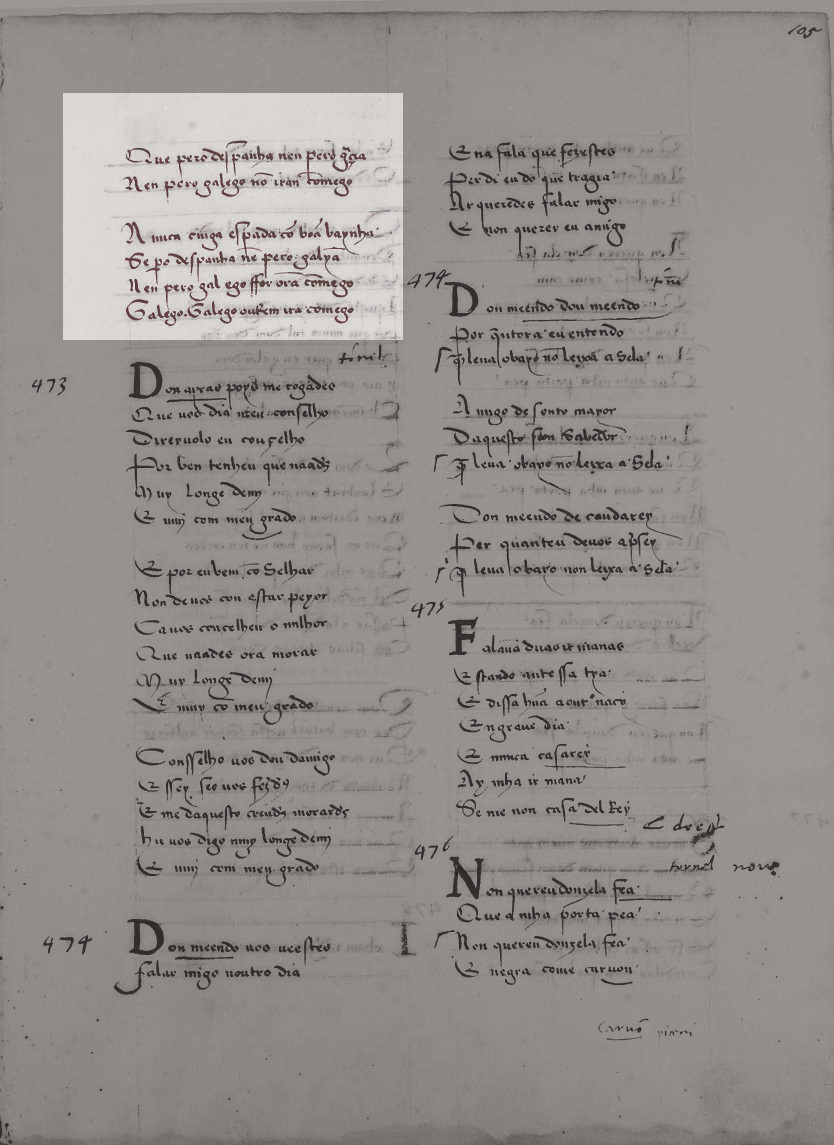 105
Que pero despanha nen pero gícia
Nen pero galego nō irán comego
N nuca cinga espada cō boā baynha
Se po despanha nē pero galyza
Nen pero gal ego ffor ora comego
Galego. Galego outrem ira comego
tornil
473
Don ayras poys me rogades
Que uos dia meu conselho
Direyuolo eu concelho
Por ben tenheu que uaads
Muy longe demj
E mui com meu grado
E por eu bem cō Selhar
Non deuos con estar peyor
Ca uos concelheu o milhor
Que uaades ora morar
Muy longe demj
E muy cō meu grado
Consselho uos dou damigo
E ssey seo uos fezds
E me daquesto creuds morards
hu uos digo muy longe demj
E mui com meu grado
474
Don meendo uos ueestes
falar migo noutro dia
E na fala que fezestes
Perdi eu do que tragia
Ar queredes falar migo
E non querer eu amigo
474
Don meendo don meendo
Por quitora eu entendo
q̄ leua obayo nō leyxa a Sela
Amigo de souto mayor
Daquesto son Sabedor
q̄ leua obayo nō leyxa a Sela
Don meendo de candarey
Per quanteu deuos ap̄sey
q̄ leua obayo non leyxa a Sela
475
Falauā duas ir manas
Estando ante ssa tya
E dissa hūa a outra naçy
En graue dia
E nunca casarey
Ay mha ir mana
Se me non casa del Rey
476
tornel nove
Non quereu donzela fea
Que a mha porta pea
Non quereu donzela fea
E negra come caruon
Caruō